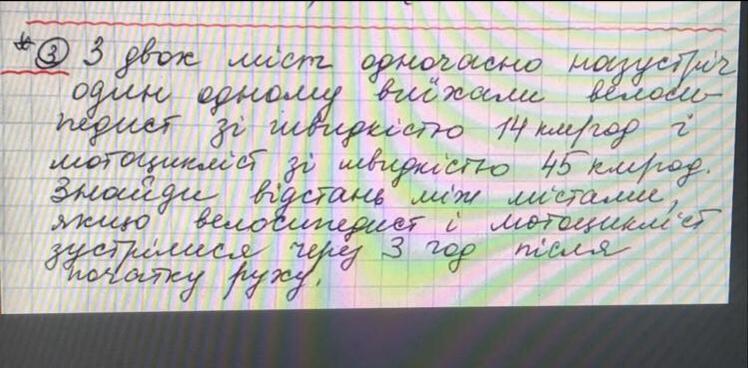 * ③ З двох міст одночасно назустріч
один одному виїхали велоси-
педист зі швидкістю 14 км/год і
мотоцикліст зі швидкістю 45 км/год.
Знайди відстань між містами,
якщо велосипедист і мотоцикліст
зустрілися через 3 год після
початку руху.